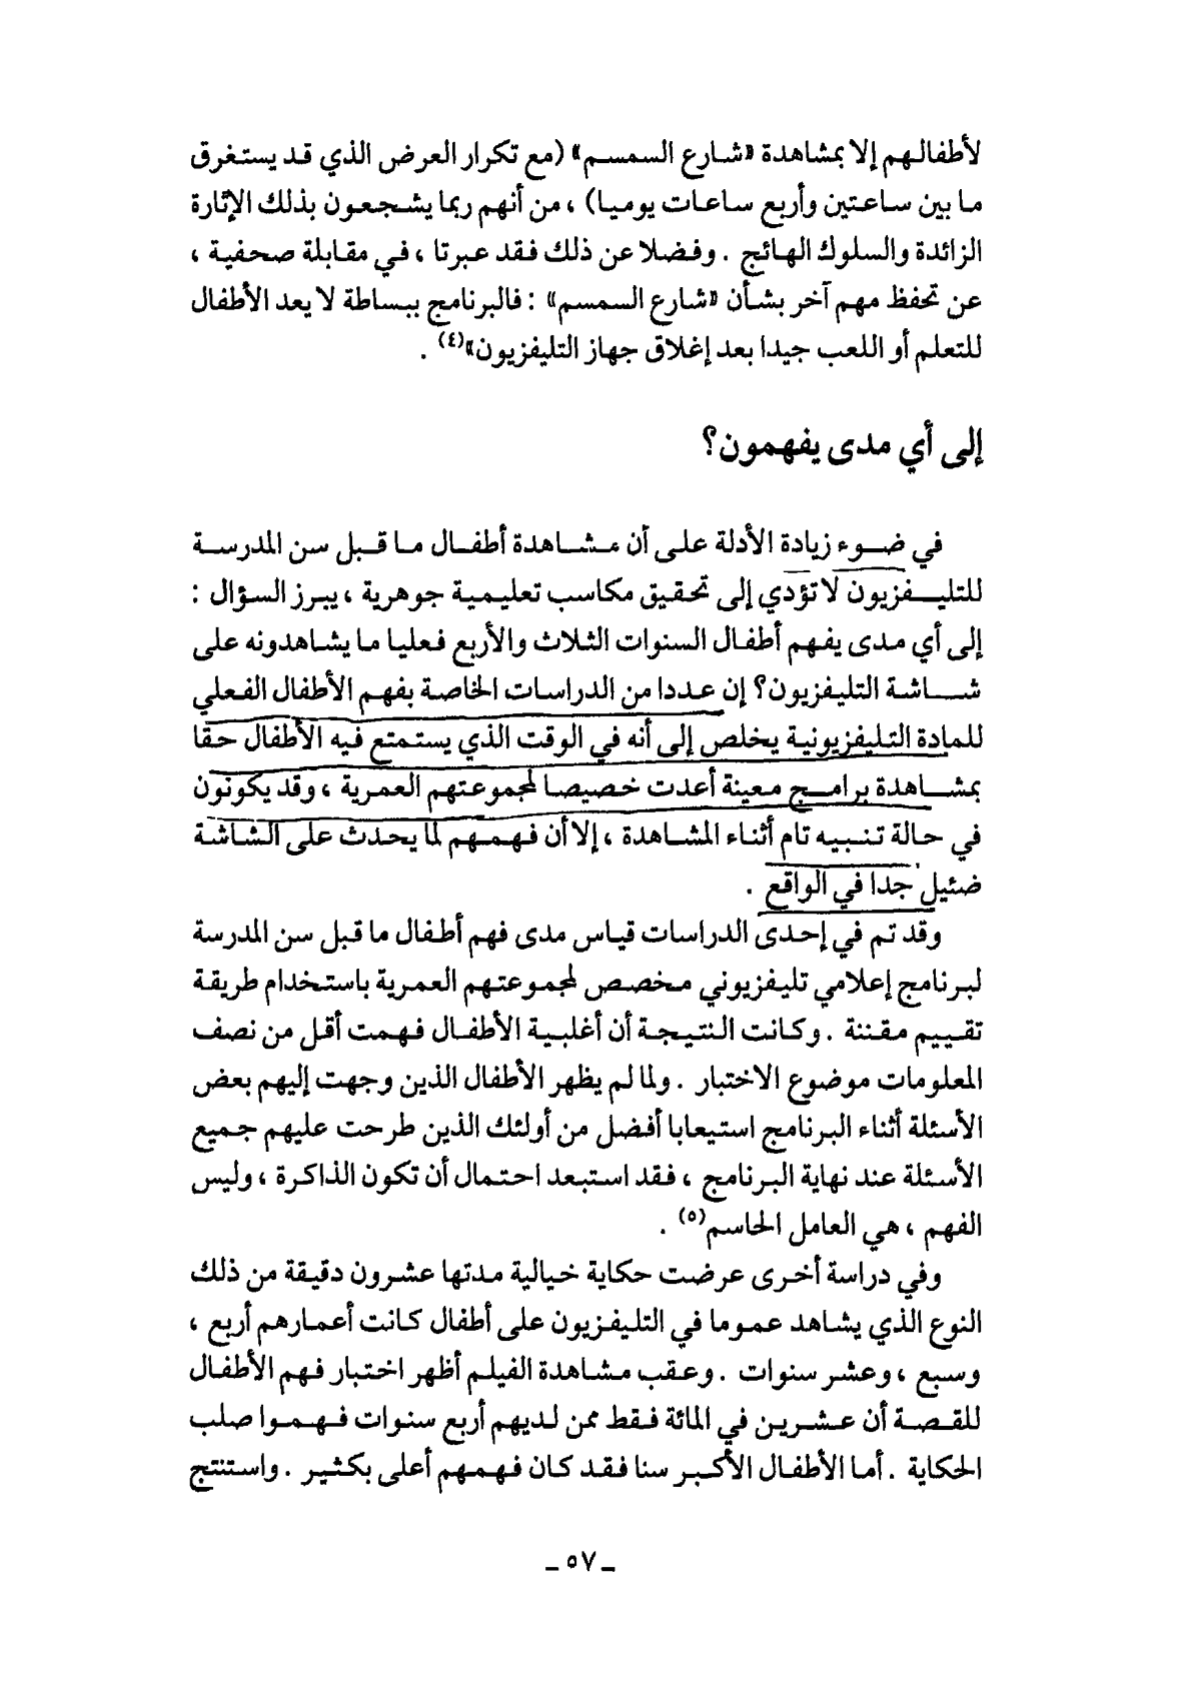 لأطفالهم إلا بمشاهدة «شارع السمسم» (مع تكرار العرض الذي قد يستغرق
ما بين ساعتين وأربع ساعات يوميا) ، من أنهم ربما يشجعون بذلك الإثارة
الزائدة والسلوك الهائج . وفضلا عن ذلك فقد عبرتا ، في مقابلة صحفية ،
عن تحفظ مهم آخر بشأن «شارع السمسم» : فالبرنامج ببساطة لا يعد الأطفال
للتعلم أو اللعب جيدا بعد إغلاق جهاز التليفزيون»(٤) .
إلى أي مدى يفهمون؟
في ضوء زيادة الأدلة على أن مشاهدة أطفال ما قبل سن المدرسة
للتليفزيون لا تؤدي إلى تحقيق مكاسب تعليمية جوهرية ، يبرز السؤال :
إلى أي مدى يفهم أطفال السنوات الثلاث والأربع فعليا ما يشاهدونه على
شاشة التليفزيون؟ إن عددا من الدراسات الخاصة بفهم الأطفال الفعلي
للمادة التليفزيونية يخلص إلى أنه في الوقت الذي يستمتع فيه الأطفال حقا
بمشاهدة برامج معينة أعدت خصيصا لمجموعتهم العمرية ، وقد يكونون
في حالة تنبيه تام أثناء المشاهدة ، إلا أن فهمهم لما يحدث على الشاشة
ضئيل جدا في الواقع .
وقد تم في إحدى الدراسات قياس مدى فهم أطفال ما قبل سن المدرسة
لبرنامج إعلامي تليفزيوني مخصص لمجموعتهم العمرية باستخدام طريقة
تقييم مقننة . وكانت النتيجة أن أغلبية الأطفال فهمت أقل من نصف
المعلومات موضوع الاختبار . ولما لم يظهر الأطفال الذين وجهت إليهم بعض
الأسئلة أثناء البرنامج استيعابا أفضل من أولئك الذين طرحت عليهم جميع
الأسئلة عند نهاية البرنامج ، فقد استبعد احتمال أن تكون الذاكرة ، وليس
الفهم ، هي العامل الحاسم(٥) .
وفي دراسة أخرى عرضت حكاية خيالية مدتها عشرون دقيقة من ذلك
النوع الذي يشاهد عموما في التليفزيون على أطفال كانت أعمارهم أربع ،
وسبع ، وعشر سنوات . وعقب مشاهدة الفيلم أظهر اختبار فهم الأطفال
للقصة أن عشرين في المائة فقط ممن لديهم أربع سنوات فهموا صلب
الحكاية . أما الأطفال الأكبر سنا فقد كان فهمهم أعلى بكثير . واستنتج
ـ ٥٧ ـ